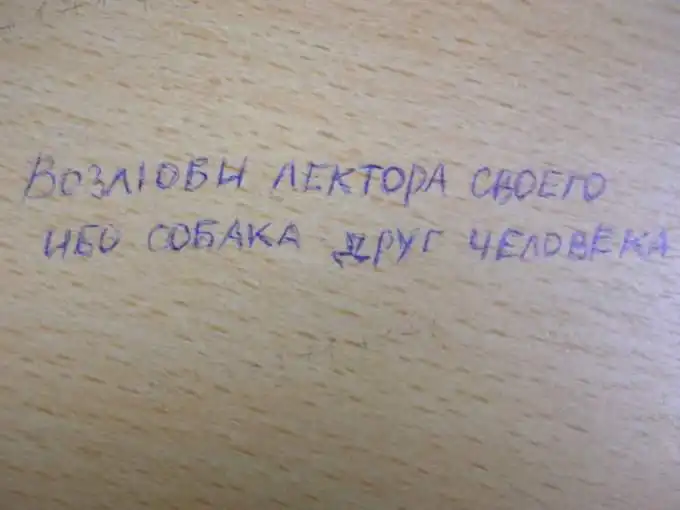 ВОЗЛЮБИ ЛЕКТОРА СВОЕГО
ИБО СОБАКА ДРУГ ЧЕЛОВЕКА